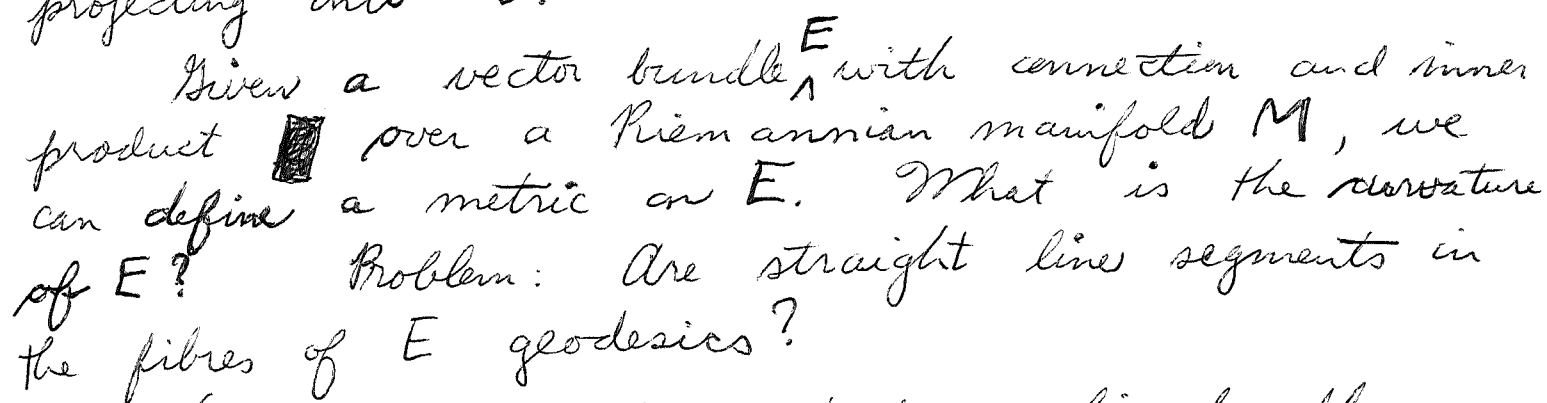 projecting onto
Given a vector bundle E with connection and inner
product over a Riemannian manifold M, we
can define a metric on E. What is the curvature
of E? Problem: Are straight line segments in
the fibres of E geodesics?